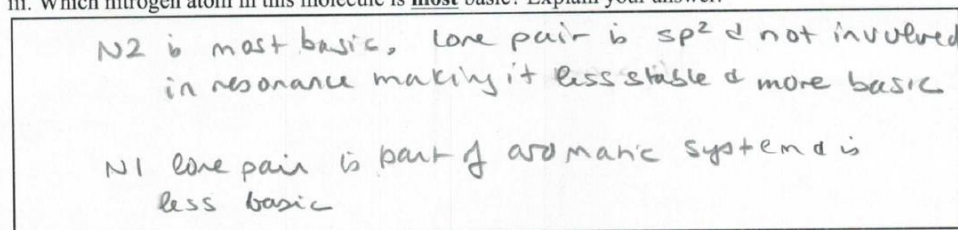 iii. Which nitrogen atom in this molecule is most basic? Explain your answer.
N2 is most basic, lone pair is sp² & not involved
in resonance making it less stable & more basic
N1 lone pair is part of aromatic system & is
less basic